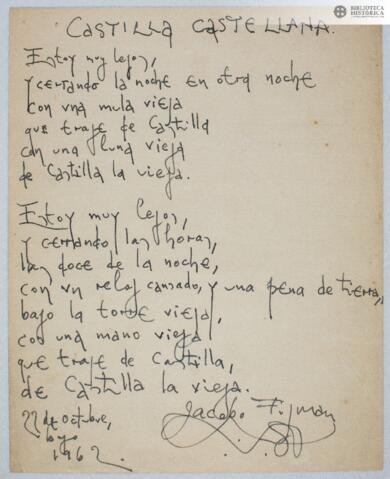 BIBLIOTECA
HISTÓRICA
CASTILLA CASTELLANA.
Estoy muy lejos,
y cerrando la noche en otra noche
con una mula vieja
que traje de Castilla
con una luna vieja
de Castilla la vieja.
Estoy muy lejos,
y cerrando las horas,
las doce de la noche,
con un reloj cansado, y una pena de tierra,
bajo la torre vieja,
con una mano vieja
que traje de Castilla,
de Castilla la vieja.
Jacobo Fijman
22 de octubre,
1962.